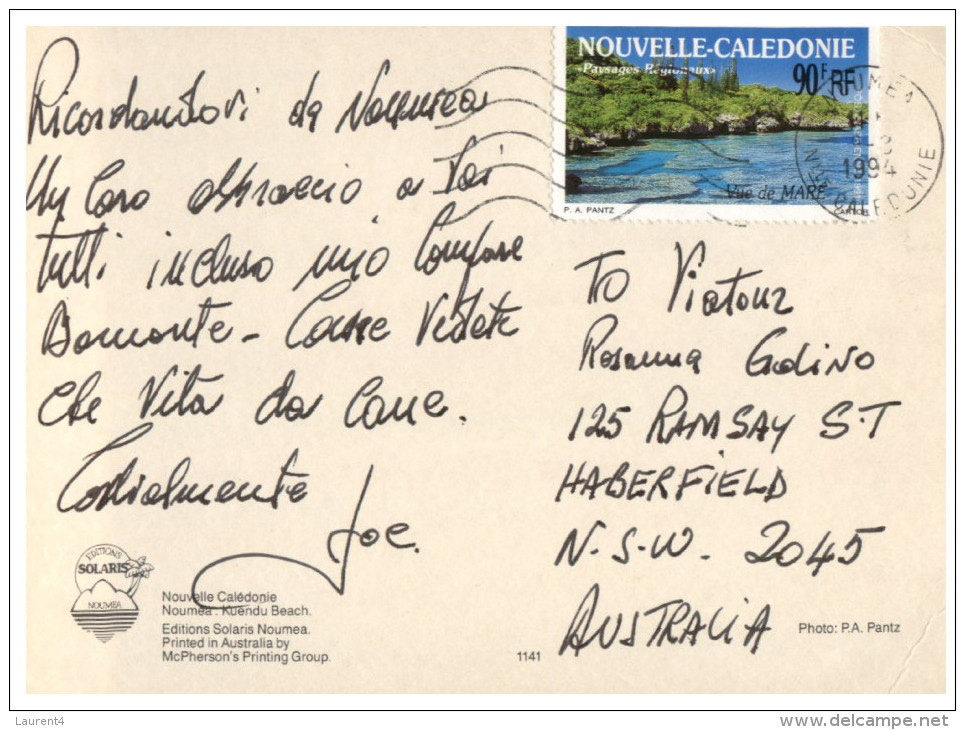 Ricordandovi da Noumea
Un Caro abbraccio a Voi
tutti incluso mio Compare
Bomonte - Come Vedete
che Vita da Cane.
Cordialmente
Joe.
NOUVELLE-CALEDONIE
«Paysages Régionaux»
90F RF
Vue de MARÉ
P. A. PANTZ
CARTOR
NOUMEA
1994
CALEDONIE
To Viatour
Rosanna Godino
125 RAMSAY S.T
HABERFIELD
N.S.W. 2045
AUSTRALIA
EDITIONS
SOLARIS
NOUMEA
Nouvelle Calédonie
Noumea : Kuendu Beach.
Editions Solaris Noumea.
Printed in Australia by
McPherson's Printing Group.
1141
Photo: P.A. Pantz
Laurent4
delcampe.net